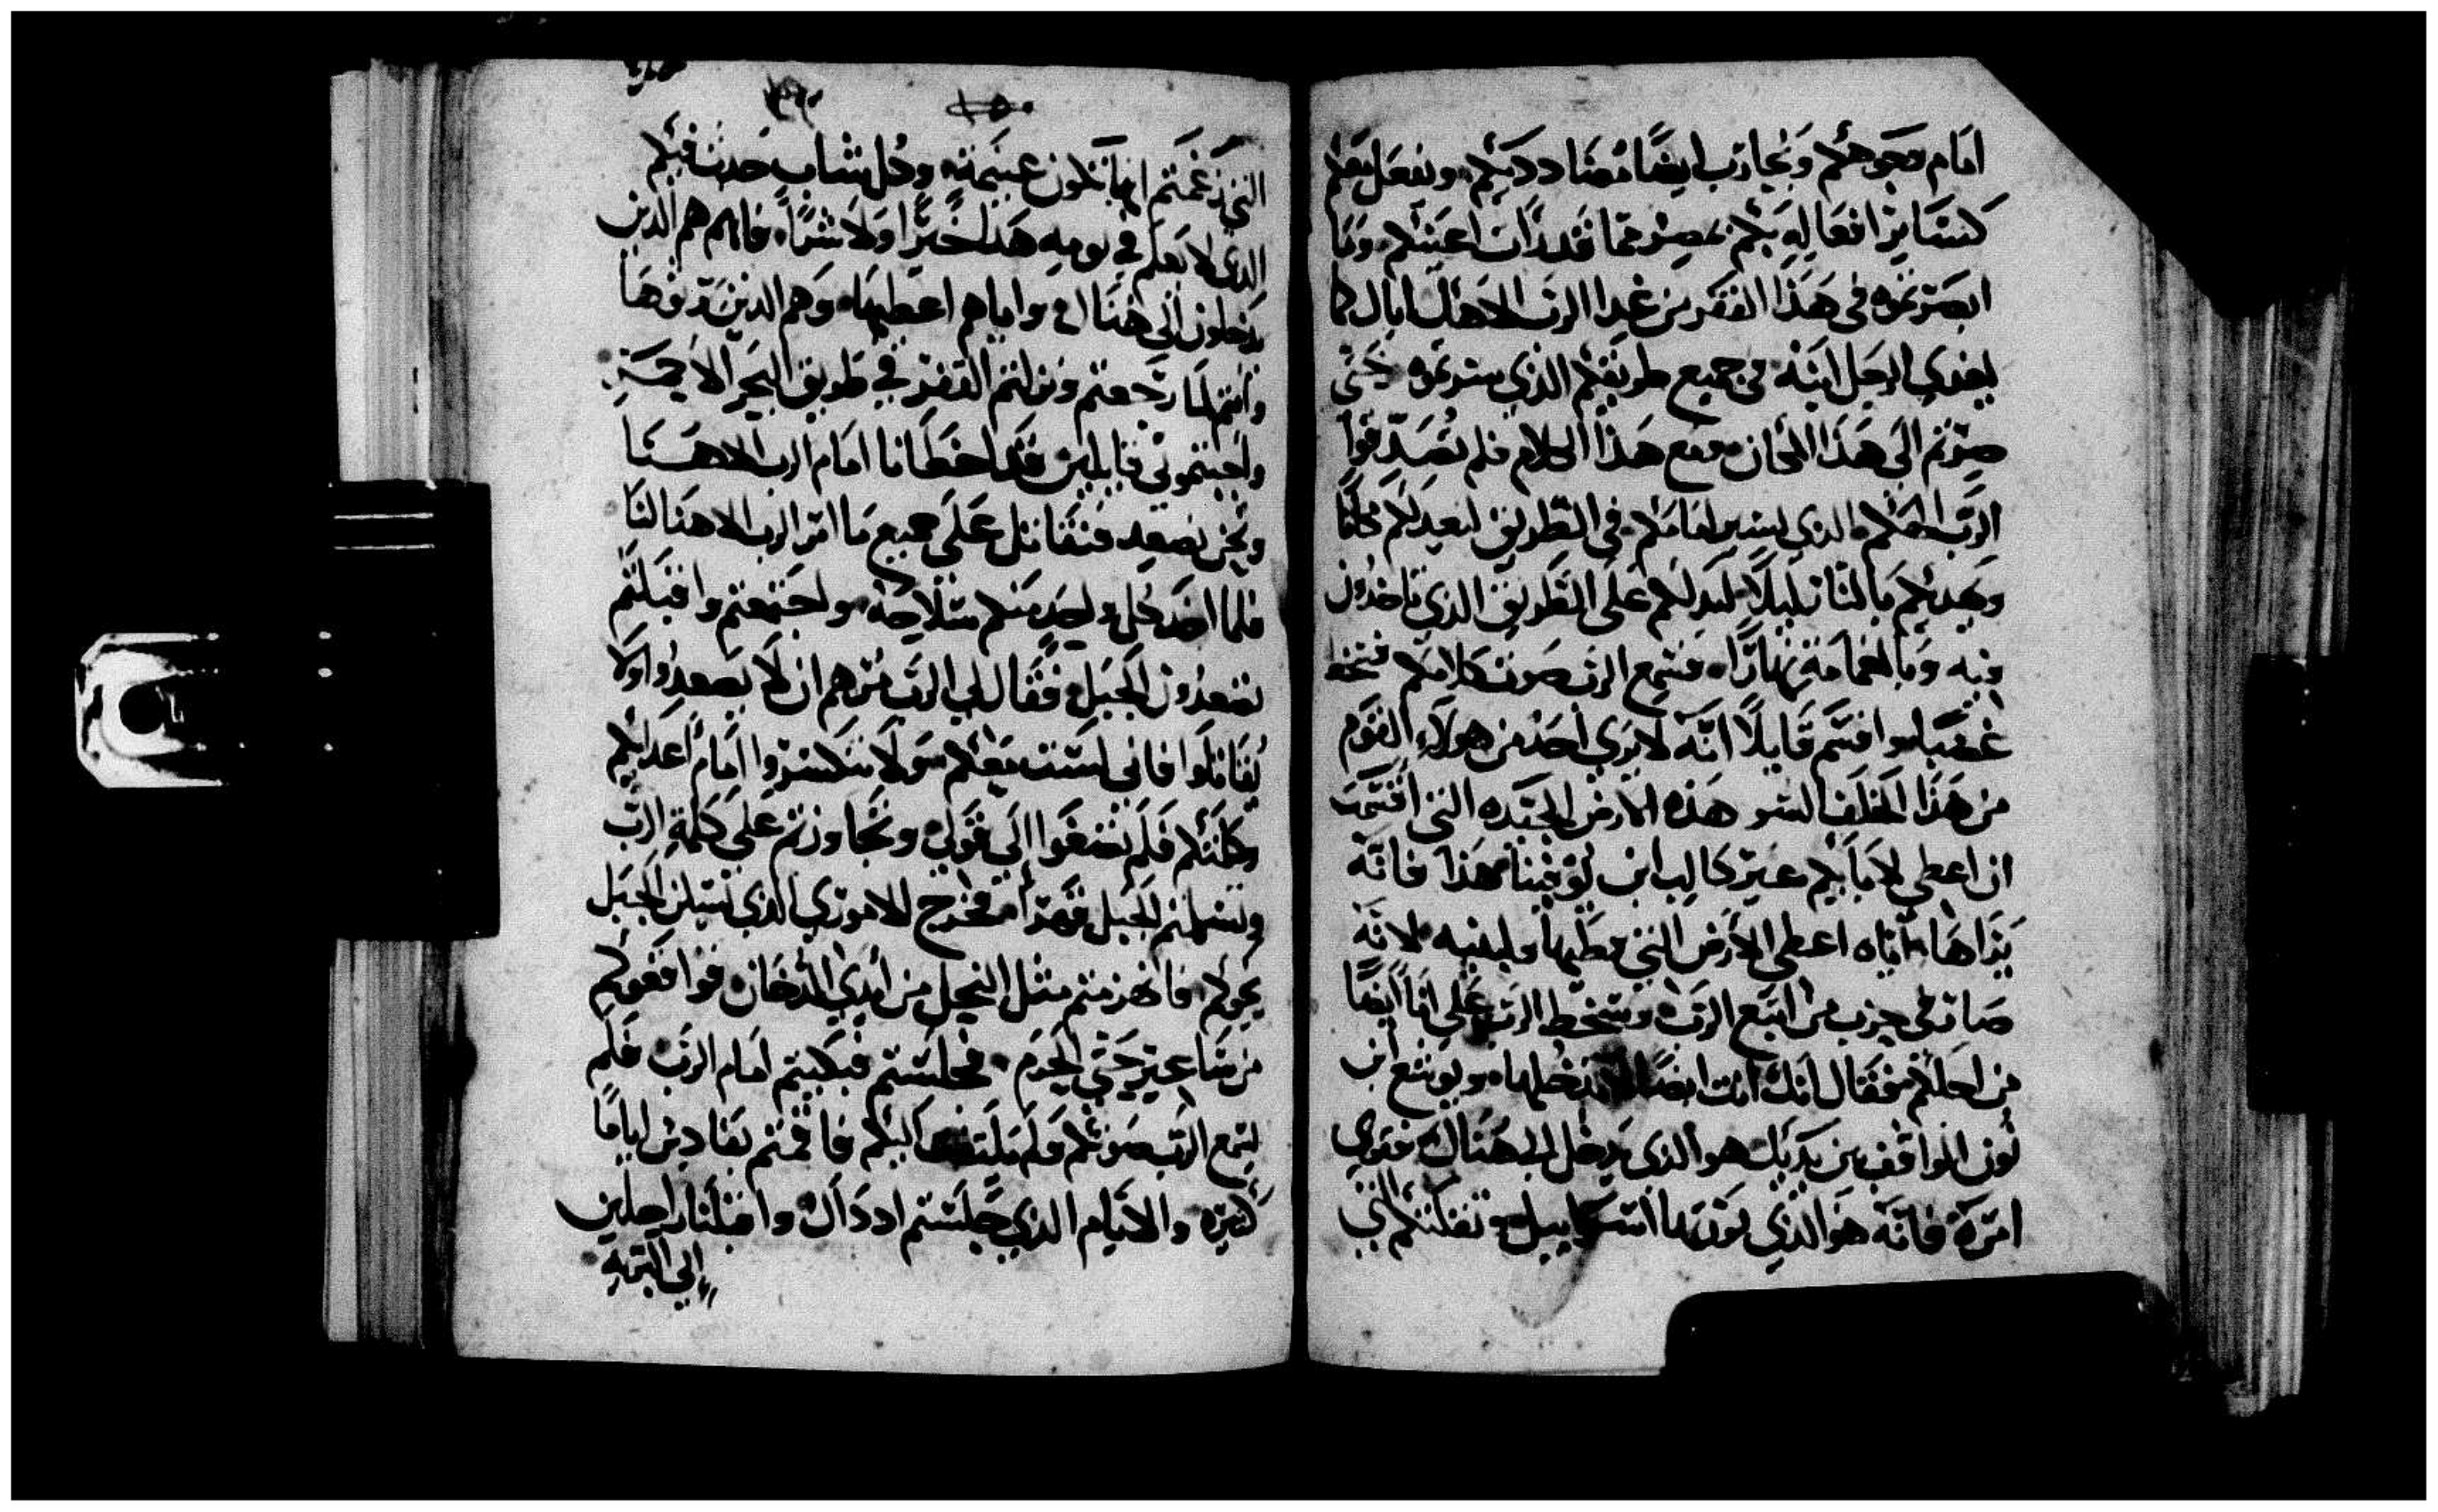 امام وجوهكم ويحارب ايضًا مضاددكم ويفعل معكم
كسَاير افعاله بكم بمصر مما قد رات اعينكم وما
ابصرتموه في هذا القفر من غدا الرب الاهك اياك كما
يغدي الرجل ابنه في جميع طريقكم الذي سرتموه حتى
صرتم الى هذا المكان ومع هذا الكلام فلم تصدقوا
الرب الهكم الذي يسير امامكم في الطريق ليعد لكم مكانًا
ويهديكم بالنار ليلًا ليدلكم على الطريق الذي تاخذون
فيه وبالغمامة نهارًا فسمع الرب صوت كلامكم فسخط
غضبًا واقسم قايلًا انه لا يرى احد من هولاء القوم
من هذا الخلف السو هذه الارض الجيده التي اقسمت
ان اعطي لابايكم غير كالب ابن يوفينا هذا فانه
يراها واياه اعطي الارض التي وطيها ولبنيه لانه
صار في حزب من اتبع الرب وسخط الرب علي انا ايضًا
من اجلكم فقال انك انت ايضًا لا تدخلها ويوشع ابن
نون الواقف بين يديك هو الذي يدخل الى هناك فقوي
امره فانه هو الذي يورثها اسراييل وتفلتكم التي
التي زعمتم انها تكون غنيمة وكل شاب حدث فيكم
الذي لا يعلم في يومه هذا خيرًا ولا شرًا فانهم هم الذين
يدخلون الى هنا و اياهم اعطيها وهم الذين يرثوها
وانتم لما رجعتم ونزلتم القفر في طريق البحر الاحمر
واجبتموني قايلين قد اخطانا امام الرب الاهنا
ونحن نصعد فنقاتل على جميع ما امر الرب الاهنا لنا
فلما اخذ كل واحد منكم سلاحه واجتمعتم واقبلتم
تصعدون الجبل فقال لي الرب مرهم ان لا يصعدوا ولا
يقاتلوا فاني لست معكم ولا تنكسروا امام اعدايكم
وكلمتكم فلم تصغوا الى قولي وتجاوزتم على كلمة الرب
وتسلمتم الجبل قهرًا فخرج الاموري الذي يسكن الجبل
نحوكم فانهزمتم مثل النحل من ايدي الدخان فوافقوكم
من ساعير حتى الحرم فجلستم فبكيتم امام الرب فلم
يسمع الرب صوتكم ولم يلتفت اليكم فاقمتم بقادس ايامًا
كثيره والايام الذي جلستم اد داك واقبلنا راحلين
إلى البريه